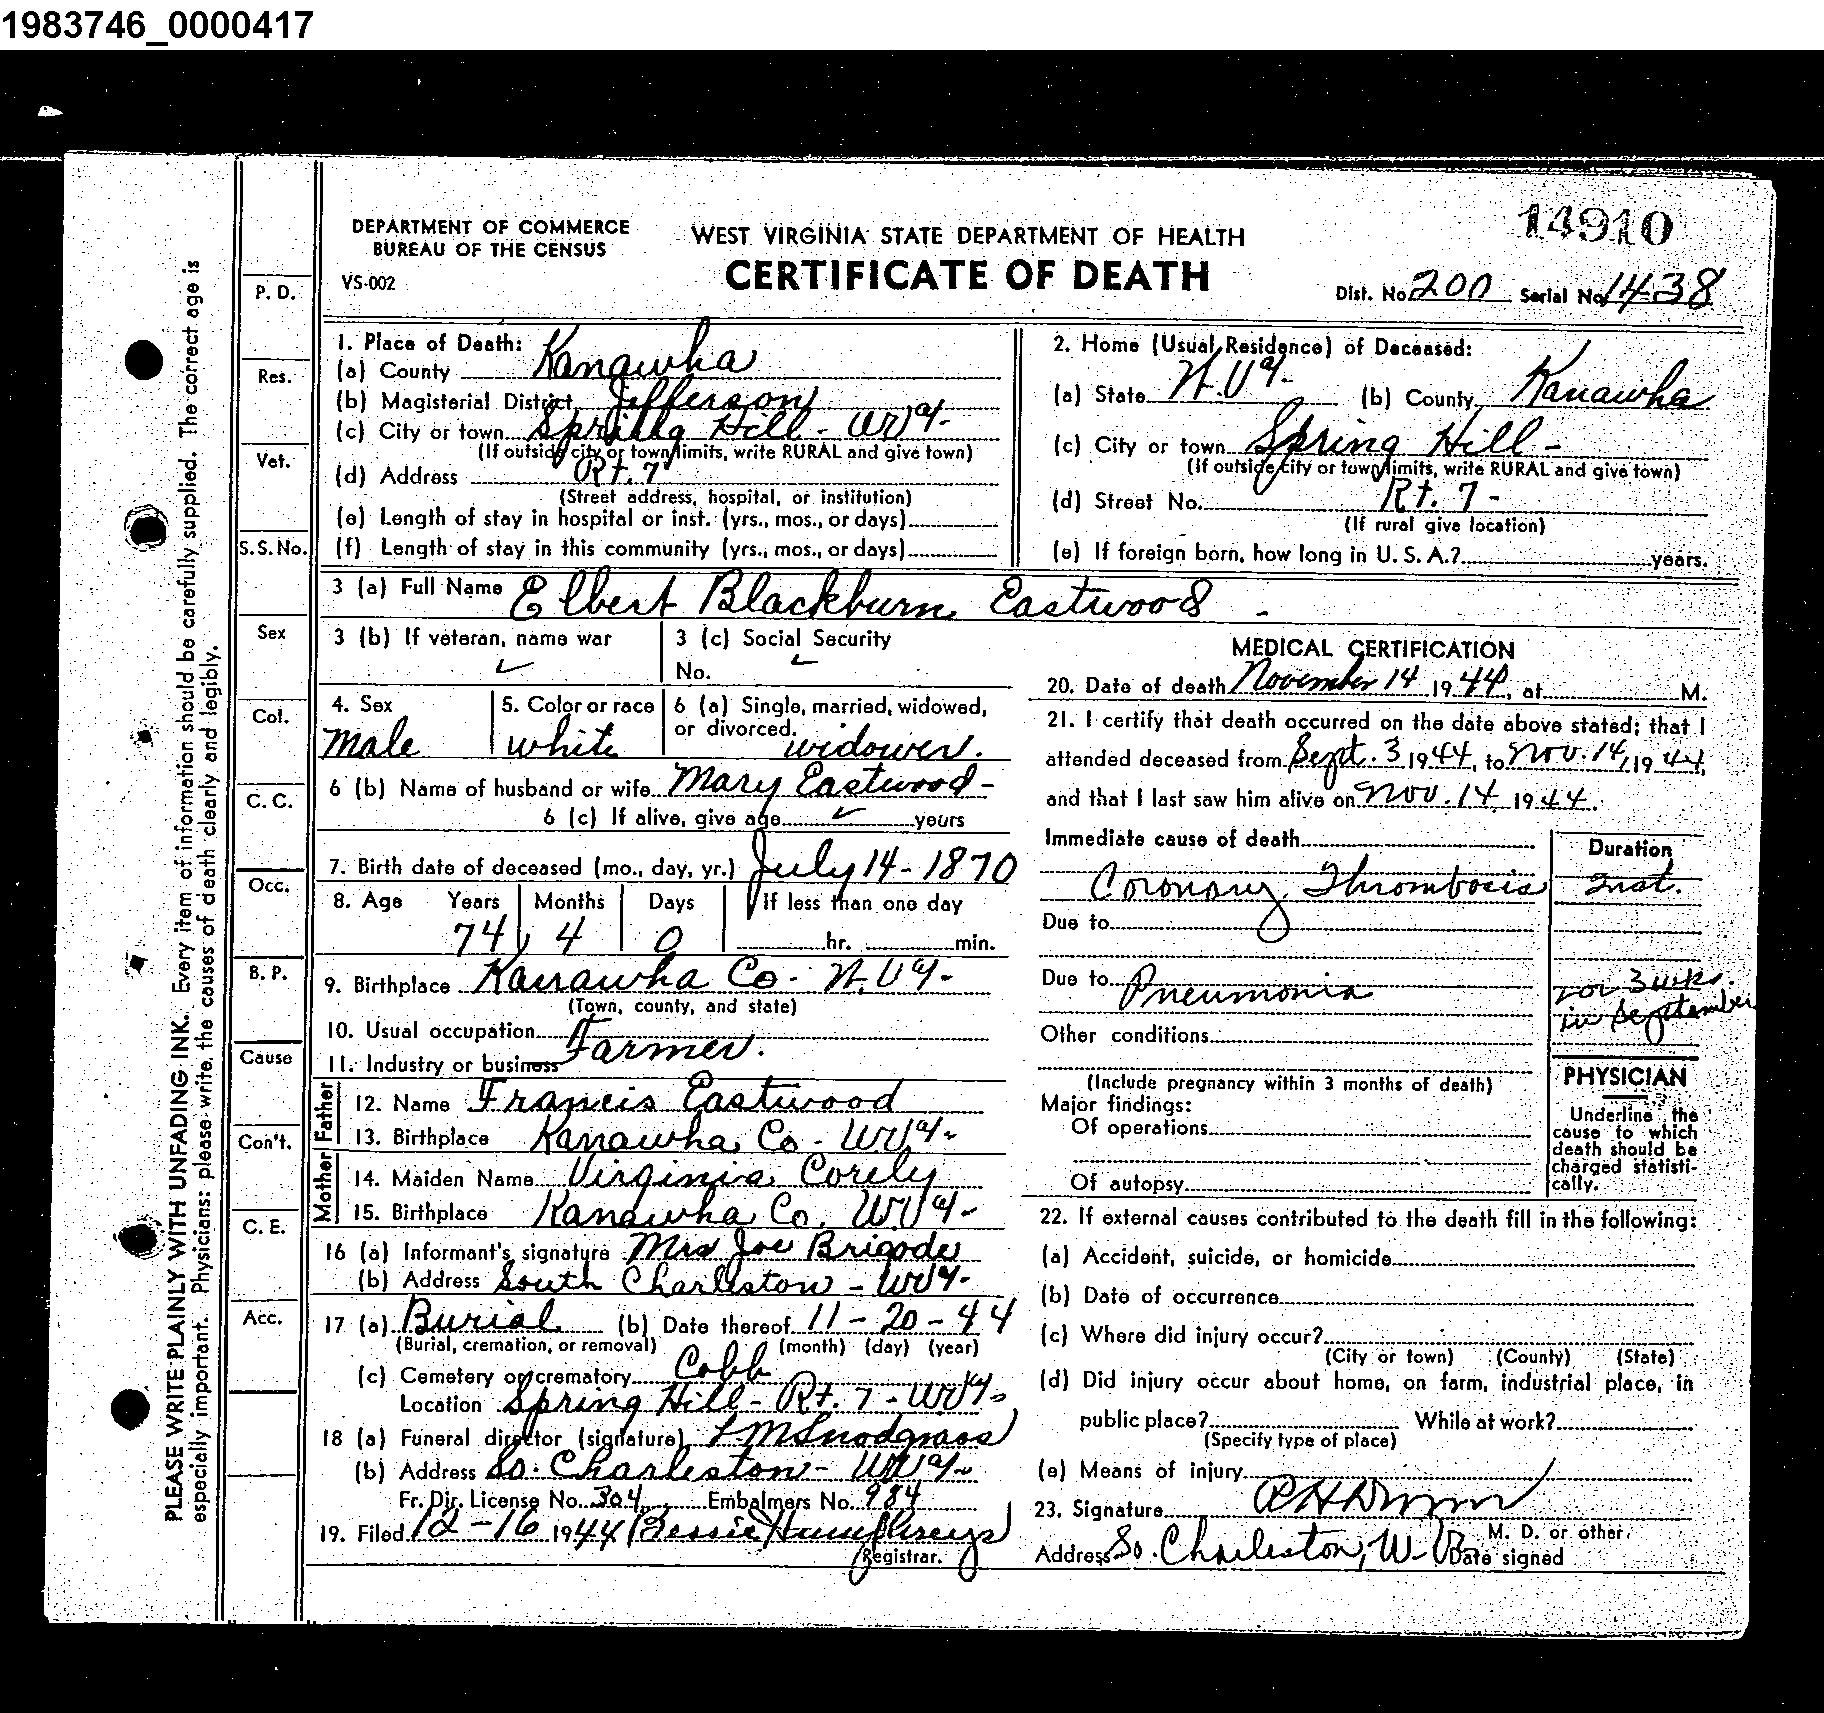 1983746_0000417
14910
DEPARTMENT OF COMMERCE
BUREAU OF THE CENSUS
VS-002
WEST VIRGINIA STATE DEPARTMENT OF HEALTH
CERTIFICATE OF DEATH
Dist. No. 200 Serial No. 1438
PLEASE WRITE PLAINLY WITH UNFADING INK. Every item of information should be carefully supplied. The correct age is
especially important. Physicians: please write the causes of death clearly and legibly.
P. D.
Res.
Vet.
S. S. No.
Sex
Col.
C. C.
Occ.
B. P.
Cause
Con't.
C. E.
Acc.
1. Place of Death:
(a) County Kanawha
(b) Magisterial District Jefferson
(c) City or town Spring Hill - WVa-
(If outside city or town limits, write RURAL and give town)
(d) Address Rt. 7
(Street address, hospital, or institution)
(e) Length of stay in hospital or inst. (yrs., mos., or days)
(f) Length of stay in this community (yrs., mos., or days)
2. Home (Usual Residence) of Deceased:
(a) State W. Va- (b) County Kanawha
(c) City or town Spring Hill -
(If outside city or town limits, write RURAL and give town)
(d) Street No. Rt. 7 -
(If rural give location)
(e) If foreign born, how long in U. S. A.? years.
3 (a) Full Name Elbert Blackburn Eastwood -
3 (b) If veteran, name war ✓
3 (c) Social Security
No. ✓
4. Sex
Male
5. Color or race
white
6 (a) Single, married, widowed,
or divorced. widower.
6 (b) Name of husband or wife Mary Eastwood -
6 (c) If alive, give age ✓ years
7. Birth date of deceased (mo., day, yr.) July 14 - 1870
8. Age Years Months Days If less than one day
74 4 0 hr. min.
9. Birthplace Kanawha Co - W. Va-
(Town, county, and state)
10. Usual occupation Farmer.
11. Industry or business
Father
12. Name Francis Eastwood
13. Birthplace Kanawha Co - WVa-
Mother
14. Maiden Name Virginia Corely
15. Birthplace Kanawha Co. WVa-
16 (a) Informant's signature Mrs Joe Brigode
(b) Address South Charleston - WVa-
17 (a) Burial (b) Date thereof 11 - 20 - 44
(Burial, cremation, or removal) (month) (day) (year)
(c) Cemetery or crematory Cobb
Location Spring Hill - Rt. 7 - WVa-
18 (a) Funeral director (signature) L M Snodgrass
(b) Address So. Charleston - WVa-
Fr. Dir. License No. 304 Embalmers No. 984
19. Filed 12 - 16 1944 Bessie Humphreys
Registrar.
MEDICAL CERTIFICATION
20. Date of death November 14 1944, at M.
21. I certify that death occurred on the date above stated; that I
attended deceased from Sept. 3 1944, to Nov. 14, 1944,
and that I last saw him alive on Nov. 14 1944.
Immediate cause of death Duration
Coronary Thrombosis Inst.
Due to
Due to Pneumonia 2 or 3 wks.
in September
Other conditions
(Include pregnancy within 3 months of death)
Major findings:
Of operations
Of autopsy
PHYSICIAN
Underline the
cause to which
death should be
charged statisti-
cally.
22. If external causes contributed to the death fill in the following:
(a) Accident, suicide, or homicide
(b) Date of occurrence
(c) Where did injury occur?
(City or town) (County) (State)
(d) Did injury occur about home, on farm, industrial place, in
public place? While at work?
(Specify type of place)
(e) Means of injury
23. Signature
M. D. or other.
Address So. Charleston, W. Va Date signed